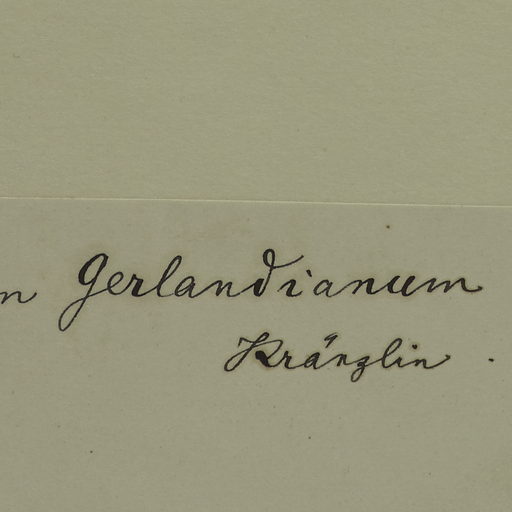 n Gerlandianum
Kränzlin.